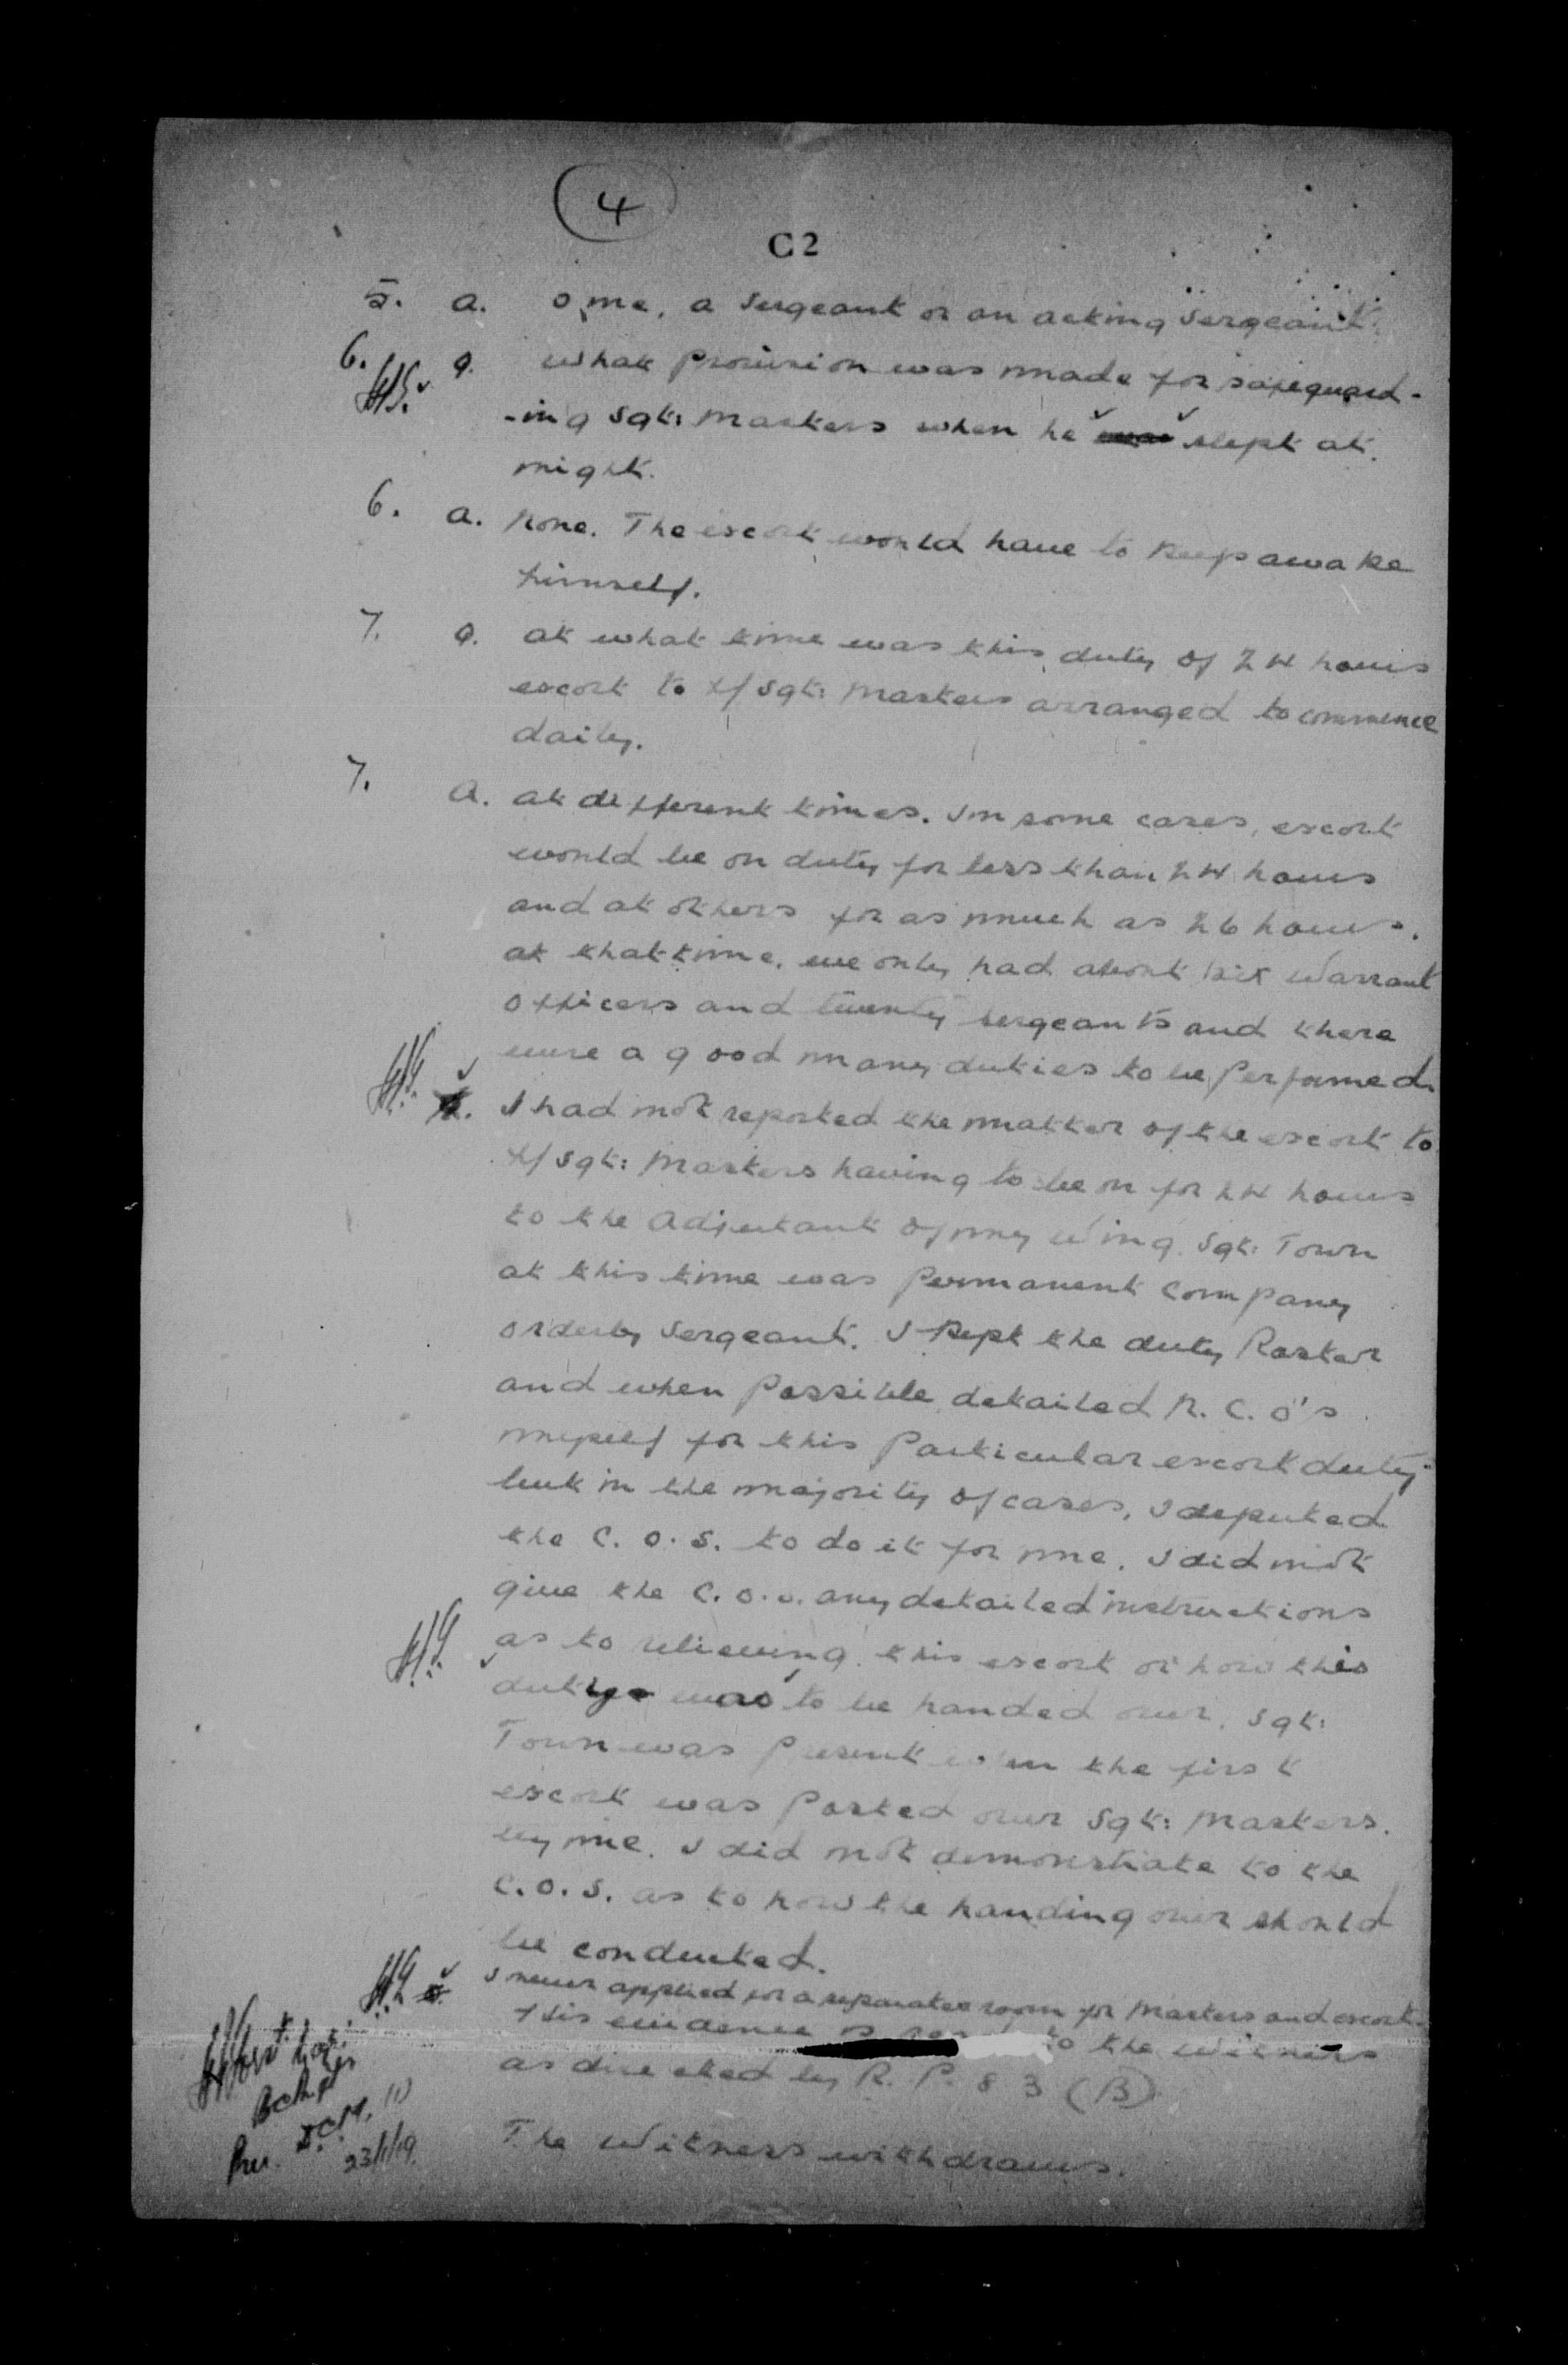 4
C2
5. a. One, a Sergeant or an acting Sergeant.
6. q. What Provision was made for safeguard-
-ing Sgt: Masters when he was slept at
night.
6. a. None. The escort would have to keep awake
himself.
7. q. at what time was this duty of 24 hours
escort to A/Sgt: Masters arranged to commence
daily.
7. a. at different times. In some cases, escort
would be on duty for less than 24 hours
and at others for as much as 26 hours.
at that time, we only had about six Warrant
Officers and twenty Sergeants and there
were a good many duties to be Performed.
I had not reported the matter of the escort to
A/Sgt: Masters having to be on for 24 hours
to the Adjutant of my Wing. Sgt: Town
at this time was Permanent Company
Orderly Sergeant. I kept the duty Roster
and when Possible detailed N.C.O's
myself for this Particular escort duty
but in the majority of cases, I deputed
the C.O.S. to do it for me. I did not
give the C.O.S. any detailed instructions
as to relieving this escort or how this
duty was to be handed over. Sgt:
Town was Present when the first
escort was Posted over Sgt: Masters.
by me. I did not demonstrate to the
C.O.S. as to how the handing over should
be conducted.
I never applied for a separate room for Masters and escort.
This evidence is to the Witness
as directed by R.P. 83 (B)
The Witness withdraws.
Pres. D.C.M.
23/1/19.